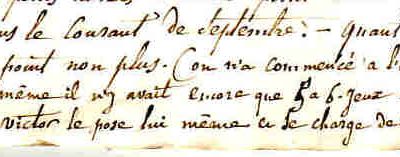 us le Courant de Septembre: - Quant
point non plus. (on n'a commencé a l'
même il n'y avait encore que 5 a 6. jeux
victor le pose lui même a se charge de